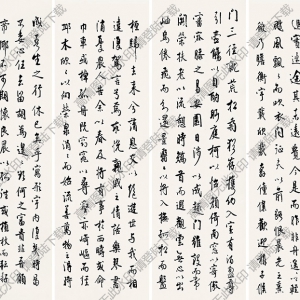 飏風飄飄而吹衣問征夫以前路恨晨光之熹
微乃瞻衡宇載欣載奔僮僕歡迎稚子候
門三徑就荒松菊猶存攜幼入室有酒盈樽
引壺觴以自酌眄庭柯以怡顏倚南窗以寄傲
審容膝之易安園日涉以成趣門雖設而常
關策扶老以流憩時矯首而遐觀雲無心以出
岫鳥倦飛而知還景翳翳以將入撫孤松而盤
桓歸去來兮請息交以絕遊世與我而相
遺復駕言兮焉求悅親戚之情話樂琴書
巾車或棹孤舟既窈窕以尋壑亦崎嶇而經
丘木欣欣以向榮泉涓涓而始流善萬物之得時
感吾生之行休已矣乎寓形宇內復幾時曷
不委心任去留胡為乎遑遑欲何之富貴非吾願
帝鄉不可期懷良辰以孤往或植杖而耘